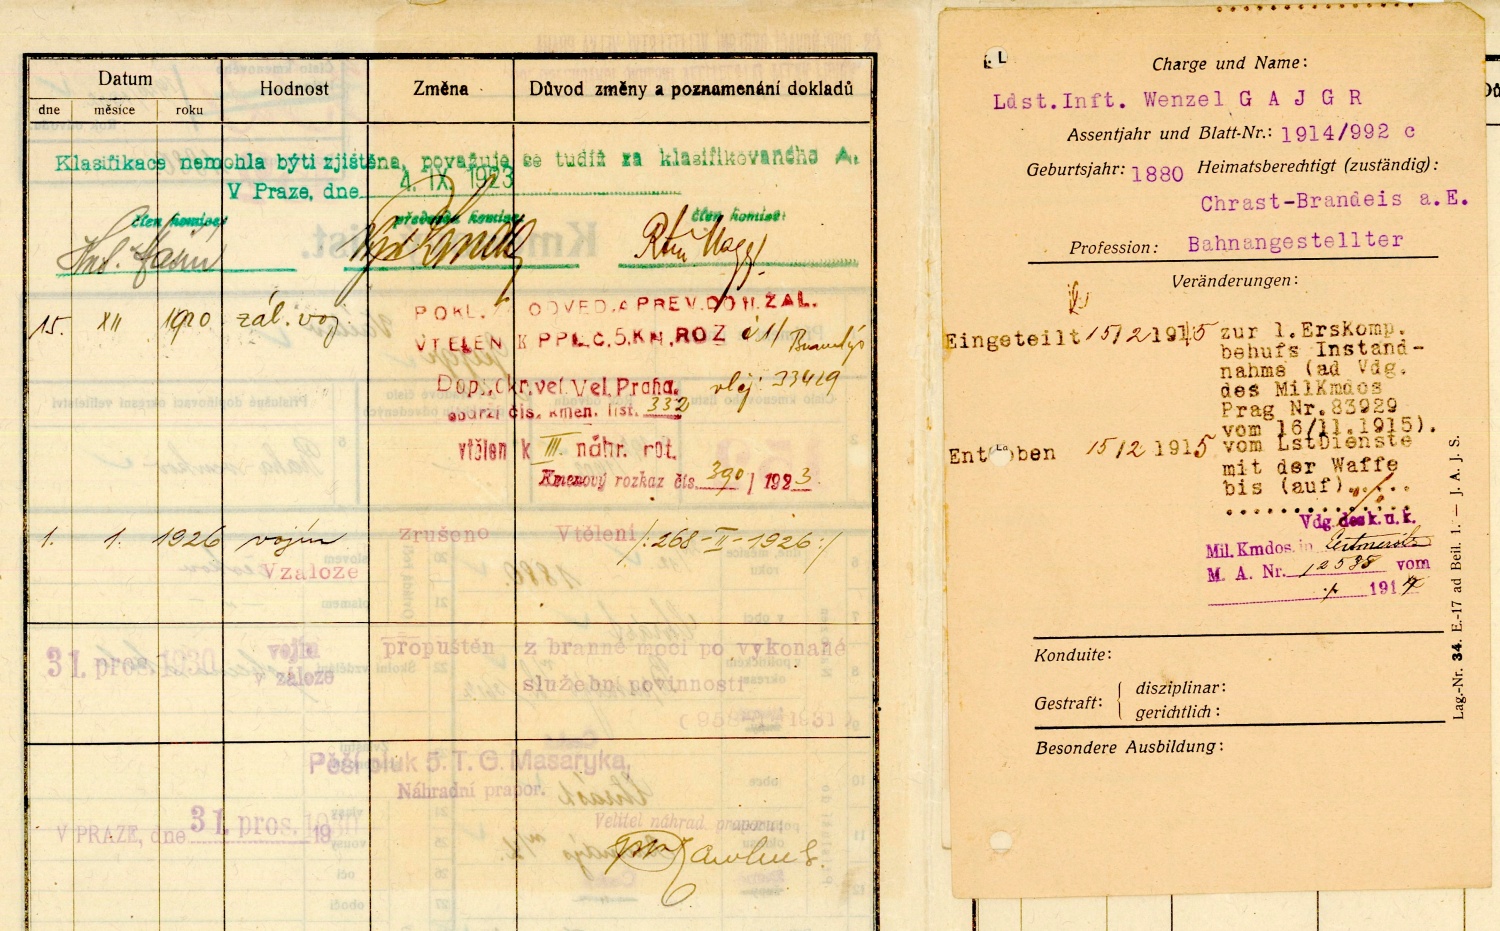 Datum
Hodnost
Změna
Důvod změny a poznamenání dokladů
dne
měsíce
roku
Klasifikace nemohla býti zjištěna, považuje se tudíž za klasifikovaného A.
V Praze, dne 4. IX. 1923
člen komise:
předseda komise:
člen komise:
15. XII 1920 zál. voj.
POKL. ODVED. A PREV. DO N. ZAL.
VTĚLEN K P.PL.Č.5.KM.ROZ
Brandýs
Dop. okr. vel. Vel. Praha.
obdrží čís. kmen. list. 332
vtělen k III. náhr. rot.
Kmenový rozkaz čís. 390 / 1923
1. 1. 1926 vojín
v záloze
zrušeno
Vtělení
/:268-II-1926:/
31. pros. 1930
vojín
v záloze
propuštěn
z branné moci po vykonané
služební povinnosti
Pěší pluk 5. T. G. Masaryka,
Náhradní prapor.
V PRAZE, dne 31. pros. 1930 19
Velitel náhrad. praporu:
L
Charge und Name:
Ldst.Inft. Wenzel G A J G R
Assentjahr und Blatt-Nr.: 1914/992 c
Geburtsjahr: 1880 Heimatsberechtigt (zuständig):
Chrast-Brandeis a.E.
Profession: Bahnangestellter
Veränderungen:
Eingeteilt 15/2 1915 zur 1.ErsKomp.
behufs Instand-
nahme (ad Vdg.
des MilKmdos
Prag Nr.83929
vom 16/11.1915).
Enthoben 15/2 1915 vom LstDienste
mit der Waffe
bis (auf)
Vdg. des k. u. k.
Mil. Kmdos. in Leitmeritz
M. A. Nr. 12538 vom
191
Konduite:
Gestraft: { disziplinar:
gerichtlich:
Besondere Ausbildung:
Lag.-Nr. 34. E.-17 ad Beil. 1. — J. A. J. S.